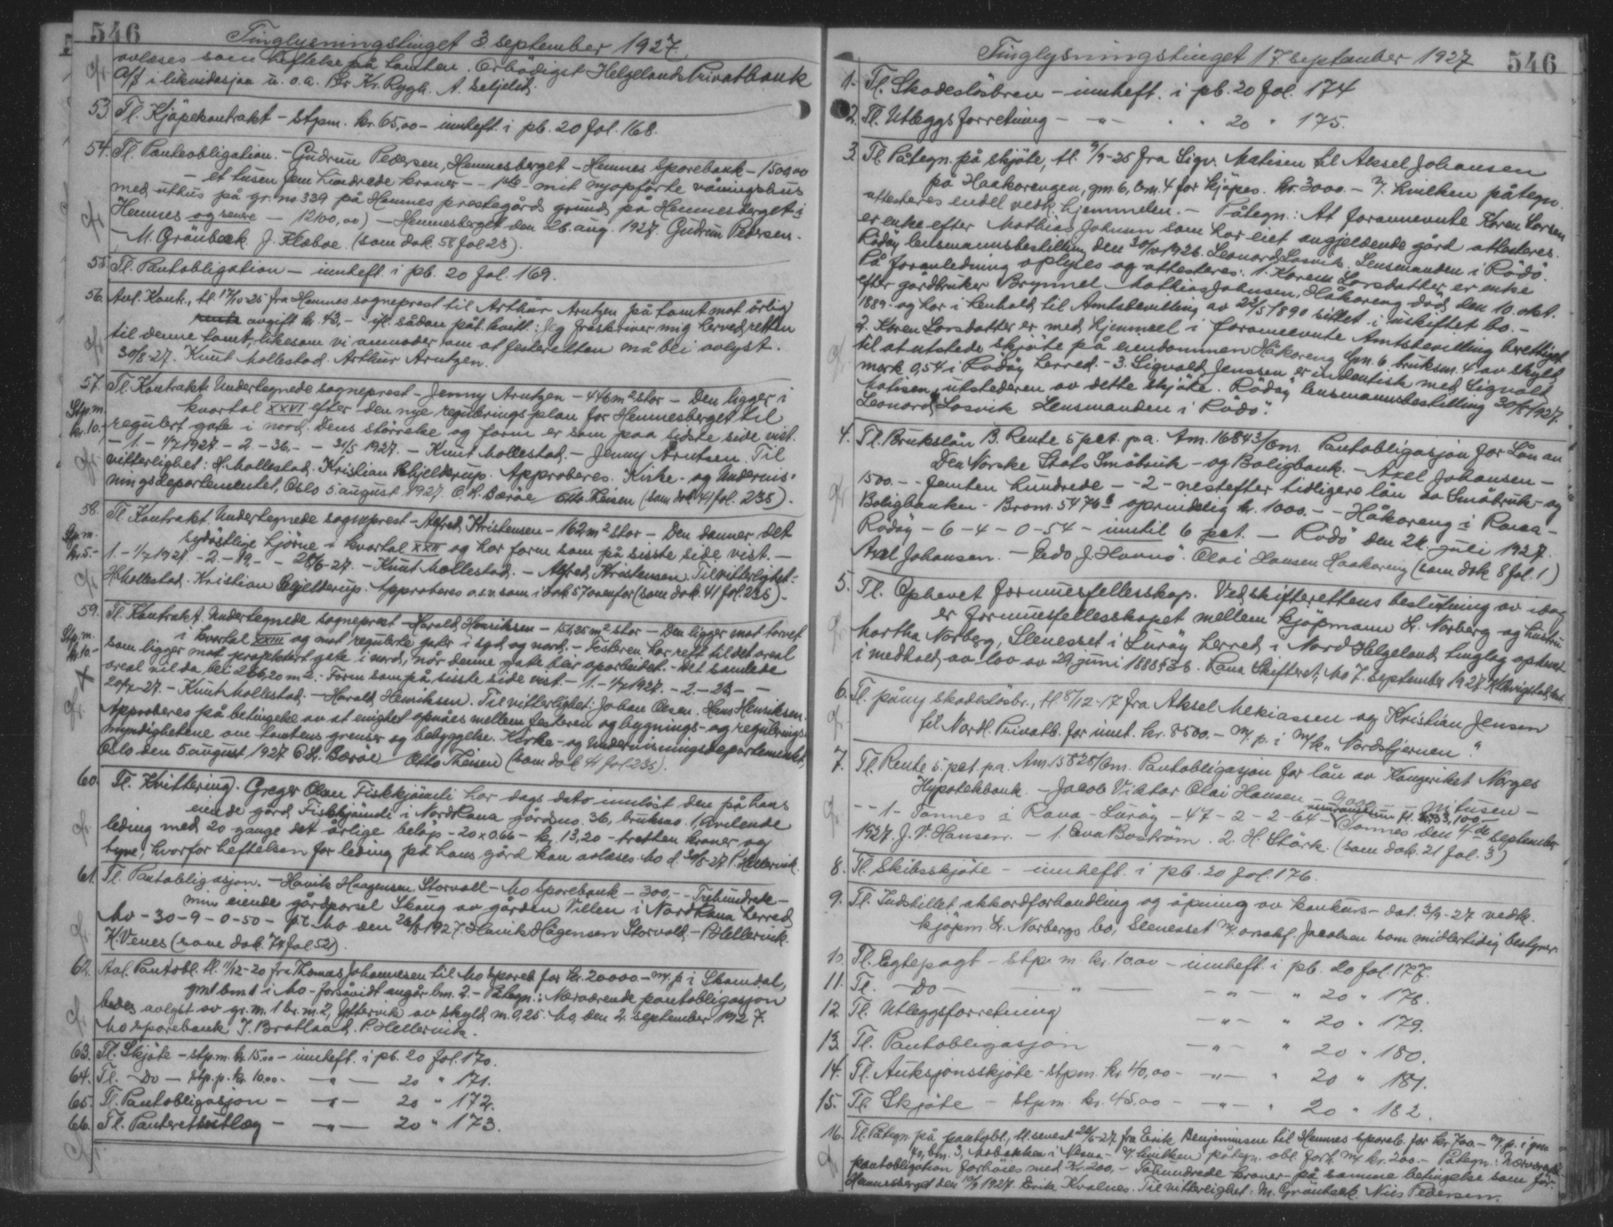 546
Tinglysningstinget 3 september 1927.
avløses som heftelse på tomten. Erbødigst Helgelands Privatbank
A/S i likvidasjon u. o. a. Kr. Rygh. A. Setjeld.
53. Tl. Kjøpekontrakt - stpm. kr. 65,00 - innheft. i pb. 20 fol. 168.
54. Tl. Panteobligation. - Gudrun Pedersen, Hemnesberget - Hemnes Sparebank - 1500,00
- et tusen fem hundrede kroner - mit nyopførte våningshus
med uthus på gr. no 339 på Hemnes prestegårds grund på Hemnesberget i
Hemnes og senere - 1200,00) - Hemnesberget den 26. aug. 1927. Gudrun Pedersen.
M. Grönbæk J. Klæboe. (som dok. 58 fol 23).
55. Tl. Pantobligation - innheft i pb. 20 fol. 169.
56. Avl. Kont., tl. 17/10-25 fra Hemnes sogneprest til Arthur Arntzen på tomt mot årlig
avgift kr. 43,- ifl. sådan påt. kont.: Jeg fraskriver mig herved retten
til denne tomt, likesom vi anmoder om at festeretten må bli avlyst.
30/8-27. Knut Mollestad. Arthur Arntzen.
57. Tl. Kontrakt. Undertegnede sogneprest - Jenny Arntzen - 446 m² stor - Den ligger i
Stp.m. kvartal XXVI efter den nye reguleringsplan for Hemnesberget til
kr. 10.- regulert gate i nord. Dens størrelse og form er som paa sidste side vist.
- 1. - 1/7 1927 - 2 - 36,- - 31/5 1927. - Knut Mollestad. - Jenny Arntsen. Til
vitterlighet: H. Mollestad. Kristian Hjelderup. Approberes. Kirke- og Undervis-
ningsdepartementet, Oslo 5 august 1927. O. H. Børøe Otto Theisen (som dok 41 fol. 235).
58. Tl Kontrakt. Undertegnede sogneprest - Alfred Kristensen - 162 m² stor - Den danner det
Stp.m. sydøstlige hjørne i kvartal XXII og har form som på sisste side vist. -
kr. 5.- 1. - 1/7 1927 - 2 - 19,- - 28/6-27. - Knut Mollestad. - Alfred Kristensen. Til vitterlighet:
H. Mollestad. Kristian Hjelderup. Approberes o.s.v. som i dok 57 ovenfor (som dok. 41 fol. 235).
59. Tl. Kontrakt. Undertegnede sogneprest - Harald Henriksen - m² stor - Den ligger mot torvet
Stp.m. i kvartal XXIII og mot regulerte gater i syd og nord. - Festeren har rett til det areal
kr. 10.- som ligger mot projektert gate i nord, når denne gate blir oparbeidet. Det samlede
areal vil da bli 266,20 m². Form som på sisste side vist - 1. - 1/7 1927. - 2. - 23 -
20/7-27. - Knut Mollestad. - Harald Henriksen. Til vitterlighet: Johan Olsen. Hans Henriksen.
Approberes på betingelse av at enighet opnåes mellem festeren og bygnings- og regulerings-
myndighetene om tomtens grenser og bebyggelse. Kirke- og Undervisningsdepartementet,
Oslo den 5 august 1927 O. H. Børøe Otto Theisen (som dok 41 fol 235).
60. Tl. Kvittering. Greger Olsen Fiskkjønnli har dags dato innløst den på hans
eiende gård, Fiskkjønnli i Nord Rana gårdsno. 36, bruksno. 1, hvilende
leding med 20 gange det årlige beløp - 20 x 0.66 - kr. 13,20 - tretten kroner og
tyve, hvorfor heftelsen for leding på hans gård kan avløses. Mo d. 30/8-27. P. Hellervik.
61. Tl. Pantobligasjon. - Havik Haagensen Storvoll - Mo Sparebank - 300,- - Trihundrede -
min eiende gårdparsel Skaug av gården Villen i Nord Rana herred
Mo - 30 - 9 - 0 - 50 - pt. Mo den 26/8 1927 Havik Hågensen Storvoll. P. Hellervik.
K. Venes (som dok. 74 fol 52).
62. Avl. Pantobl. tl. 11/12-20 fra Thomas Johannesen til Mo Spareb. for kr. 20000 - m/ p i Skamdal,
gm 1 bm 1 i Mo - forsåvidt angår bm. 2. - Påtegn.: Nærværende pantobligasjon
bedes avlyst av gr. m. 1 br. m. 2, av skyld m. 0,25. Mo, den 2. september 1927.
Mo Sparebank. J. Bratland. P. Hellervik.
63. Tl. Skjøte - stp.m. kr. 15,00 - innheft. i pb. 20 fol. 170.
64. Tl. - Do - stp.p. kr. 10.00 - - " - 20 " 171.
65. Tl. Pantobligasjon - - " - 20 " 172.
66. Tl. Panterettsutlæg - - " - 20 " 173.
546
Tinglysningstinget 17 september 1927
1. Tl. Skadesløsbrev - innheft. i pb. 20 fol. 174
2. Tl. Utleggsforretning - - " - 20 " 175.
3. Tl. Påtegn. på skjøte, tl. 9/9-25 fra Sigv. Matisen til Aksel Johansen
på Haakorengen, gm. 6, bm. 4 for kjøpes. kr. 3000. - m/ hvilken påtegn.
attesteres endel vedk. hjemmelen. - Påtegn.: At forannevnte Karen Larsen
er enke efter Mathias Johnsen som har eiet angjeldende gård attesteres.
Rødøy lensmannsbestilling den 30/10 1926. Leonard Losvik. Lensmanden i Rødø.
På foranledning oplyses og attesteres: 1. Karen Larsdatter er enke
efter gardbruker Brynnel Mathias Johnsen, Håkoreng død den 10. okt.
1889. og har i henhold til Amtsbevilling av 23/5 1890 sittet i uskiftet bo. -
2. Karen Larsdatter er med hjemmel i forannevnte Amtsbevilling berettiget
til at utstede skjøte på eiendommen Håkoreng gm. 6 bruksm. 4 av skyld
mark 0,54 i Rødøy herred. - 3. Sigvald Jenssen er indentisk med Sigvald
Matisen, utstederen av dette skjøte. Rødøy lensmannsbestilling 30/8 1927.
Leonard Losvik Lensmanden i Rødø".
4. Tl. Brukslån B. Rente 5 pct. p.a. Am. 16843/bm. Pantobligasjon for Lån av
Den Norske Stats Småbruk- og Boligbank. - Axel Johansen -
1500.- - femten hundrede - - 2 - nestefter tidligere lån av Småbruk- og
Boligbanken - Brom. 5476 B oprindelig kr. 1000. - - Håkoreng i Rana -
Rødøy - 6 - 4 - 0 - 54 - inntil 6 pct. - Rødø den 24 juli 1927.
Axel Johansen. - Edo J. Havnø. Olai Hansen Haakoreng (som dok 8 fol. 1)
5. Tl. Ophevet formuesfellesskap. Ved skifterettens beslutning av idag
er formuesfellesskapet mellem kjøpmann Kr. Norberg og hustru
Martha Norberg, Slenesset i Lurøy herred i Nord Helgeland tinglag ophevet
i medhold av lov av 29 juni 1888 § 26. Rana Skifterett, Mo 7. september 1927
6. Tl. påny skadesløsbr., tl 8/12-17 fra Aksel Mekiassen og Kristian Jensen
til Nordl. Privatb. for inntil kr. 8500.- m/ p. i m/k. "Nordstjernen".
7. Tl. Rente 5 pct. p.a. Am. 15828/bm. Pantobligasjon for lån av Kongeriket Norges
Hypotekbank. - Jacob Viktor Olai Hansen -
- - 1 - Tonnes i Rana - Lurøy - 47 - 2 - 2 - 64 - Tonnes den 4de september
1927. J. V. Hansen. - 1. Eva Bostrøm. 2. H. Stårk. (som dok. 21 fol. 3)
8. Tl. Skibsskjøte - innheft. i pb. 20 fol. 176.
9. Tl. Indstillet akkordforhandling og åpning av konkurs - dat. 3/9-27 vedk.
kjøpm. Kr. Norbergs bo, Slenesset m/ Jacobsen som midlertidig bestyrer.
10. Tl. Egtepagt - stp. m. kr. 10,00 - innheft i pb. 20 fol. 177.
11. Tl. - Do - - " - - " - " 20 " 178.
12 Tl. Utleggsforretning - " - " 20 " 179.
13. Tl. Pantobligasjon - " - " 20 " 180.
14. Tl. Auksjonsskjøte - stpm. kr 40,00 - - " - " 20 " 181.
15. Tl. Skjøte - stpm. kr. 45.00 - - " - " 20 " 182.
16. Tl. Påtegn. på pantobl., tl. senest 22/6-27 fra Erik Benjaminsen til Hemnes Spareb. for kr. 700 - m/ p. i gm
70, bm. 3, Mobakken i Alsna - m/ hvilken påtegn. obl. forh. m/ kr. 200. - Påtegn.: Nærværende
pantobligation forhøies med kr. 200, - To hundrede kroner - på samme betingelse som før.
Hemnesberget den 14/9 1927. Erik Kvalnes. Til vitterlighet: M. Grönbæk. Nils Pedersen.